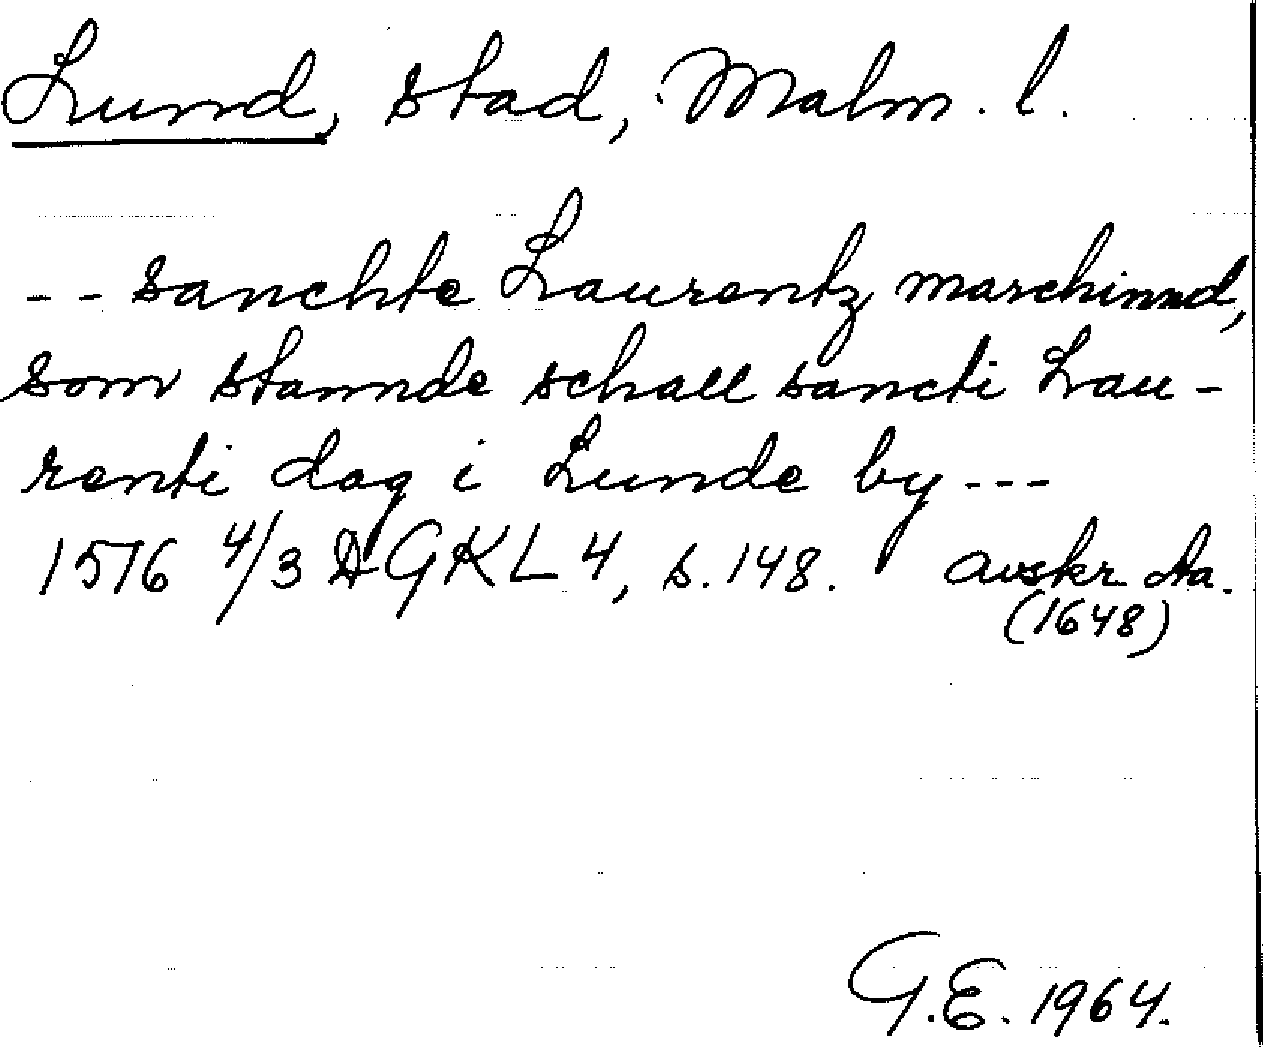 Lund, stad, Malm. l.
-- sanchte Laurentz marchinnd,
som stannde schall sancti Lau-
renti dag i Lunde by ---
1576 4/3 DGKL 4, s. 148. avskr da.
(1648)
G.E. 1964.